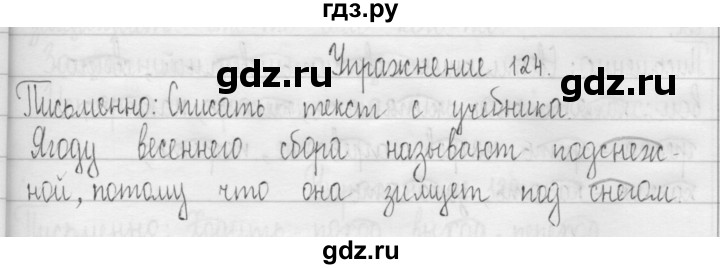 гдз.ру
Упражнение 124.
gdz.ru gdz.ru
Письменно: Списать текст с учебника
Ягоду весеннего сбора называют подснеж-
ной, потому что она зимует под снегом.
gdz.ru